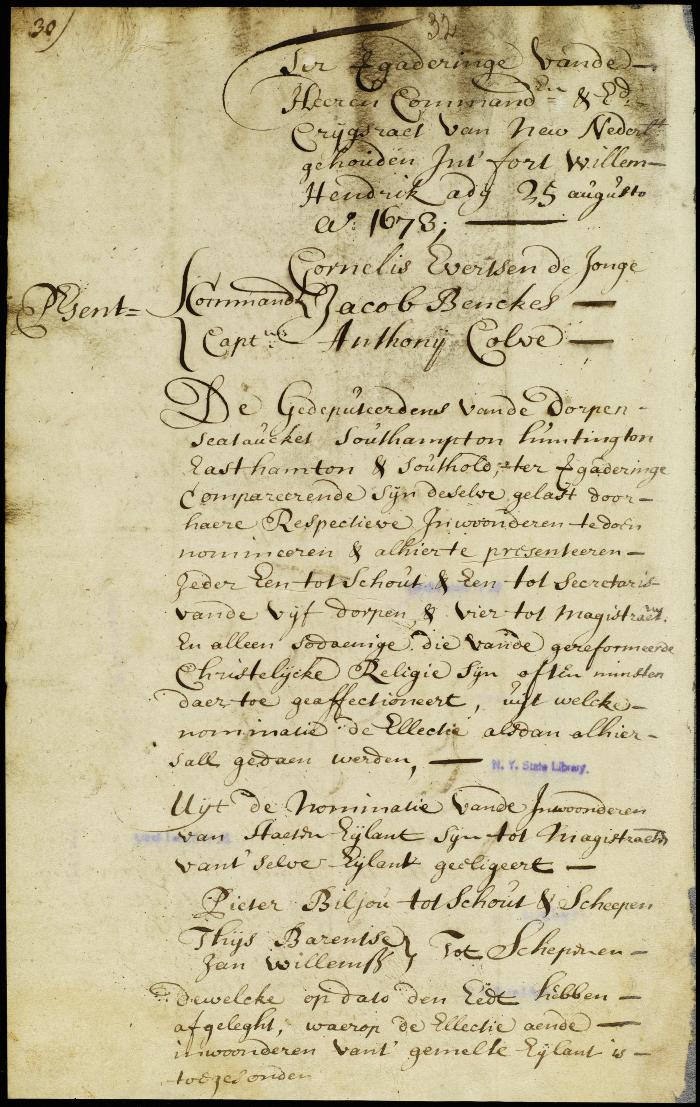 30)
32
Ter Vgaderinge vande
Heeren Command:en & Ed:
Crijgsraet van New Nederlt
gehouden Int' fort Willem
Hendrik ady 25 augusto
Ao: 1673;
Cornelis Evertsen de Jonge
Psent = Command:s Jacob Benckes
Capt:n Anthonij Colve
De Gedeputeerdens vande Dorpen
Seataucket Southampton huntington
Easthamton & Southold, ter Vgaderinge
Compareerende sijn deselve gelast door
haere Respective Inwoonderen te doen
nomineeren & alhier te presenteeren
Jeder Een tot Schout & Een tot Secretaris
vande vijf dorpen & vier tot Magistraten.
En alleen sodaenige die vande gereformeerde
Christelijcke Religie sijn often minsten
daer toe geaffectioneert, uijt welcke
nominatie de Ellectie alsdan alhier
sall gedaen werden,
N. Y. State Library.
Uijt de Nominatie vande Inwoonderen
van Staeten Eijlant sijn tot Magistraeten
vant' selve Eijlant geeligeert
Pieter Biljou tot Schout & Scheepen
Thijs Barentse
Jan Willemss } Tot Schepenen
dewelcke op dato den Eedt hebben
afgeleght, waerop de Ellectie aende
inwoonderen vant' gemelte Eijlant is
toegesonden